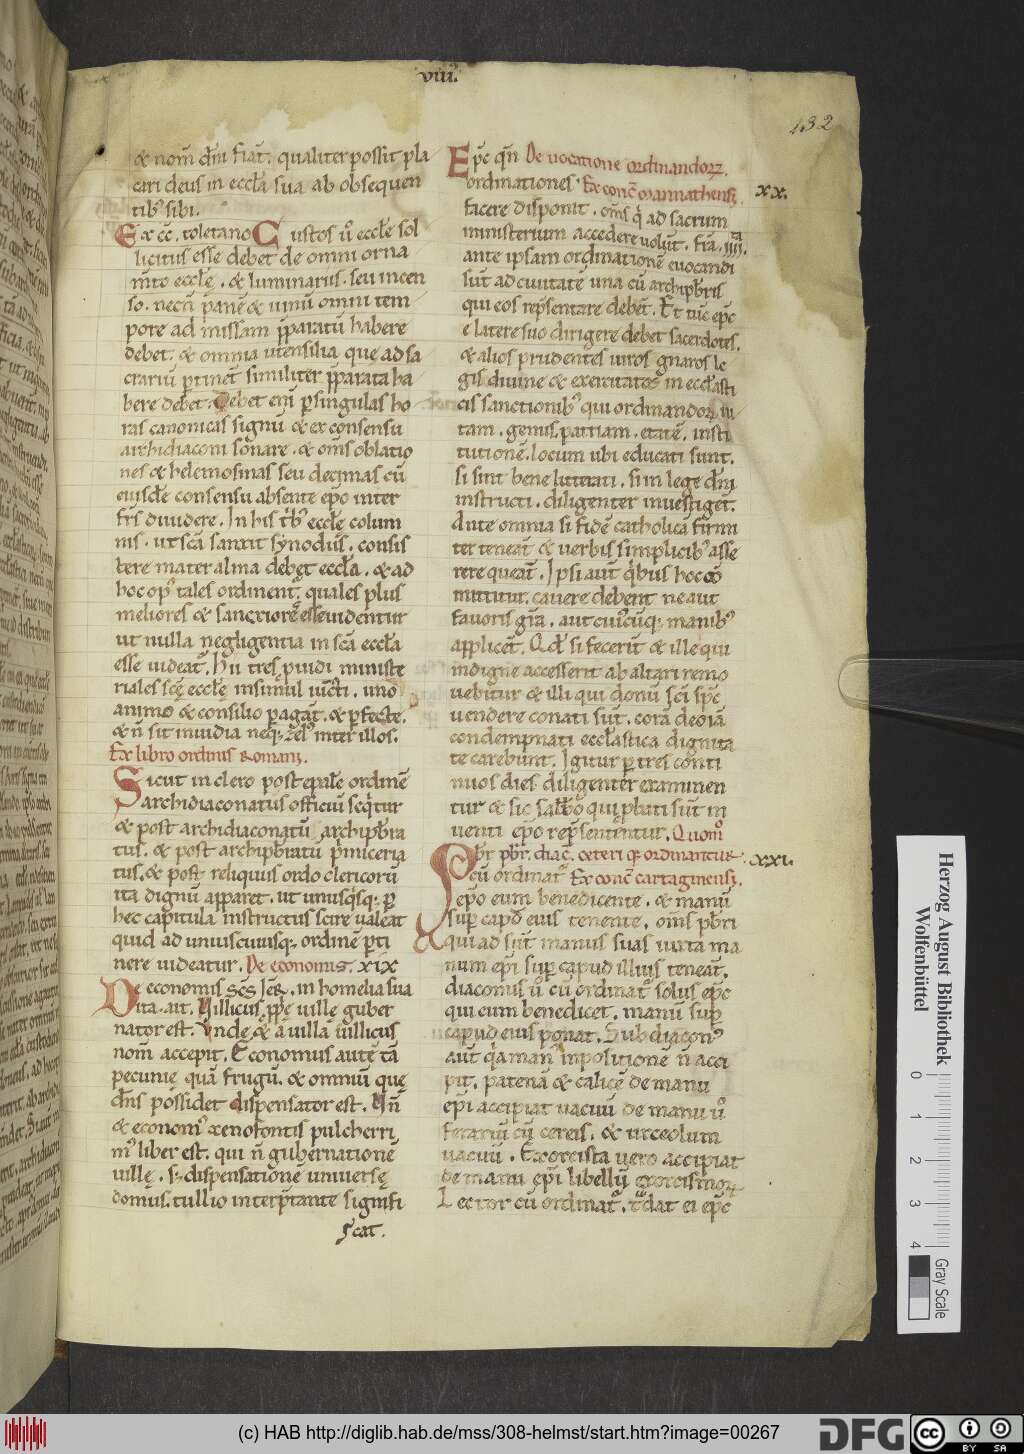 viii.
132
& nom̄ dn̄i fiat̄. qualiter possit pla
cari deus in eccl̄a sua ab obsequen
tib' sibi.
Ex c̄c. toletano Custos ū eccl̄e sol
licitus esse debet de omni orna
m̄to eccl̄e. & luminariis. seu incen
so. necn̄ pane & uinū omni tem
pore ad missam p̄paratū habere
debet. & omnia utensilia que ad sa
crariū ꝑtinēt similiter p̄parata ha
bere debet. Debet eni ꝑ singulas ho
ras canonicas signū & ex consensu
archidiaconi sonare. & om̄s oblatio
nes & helemosinas seu decimas cū
eiusdē consensu absente ep̄o inter
fr̄s diuidere. In his trib' eccl̄e colum
nis. ut sc̄a sanxit synodus. consis
tere mater alma debet eccl̄a. & ad
hoc op' tales ordinent̄. quales plus
meliores & sanctiores esse uidentur
ut nulla negligentia in sc̄a eccl̄a
esse uideat̄. Hii tres puidi ministe
riales sc̄e eccl̄e insimul iūcti. uno
animo & consilio ꝑagāt. & ꝑfecte.
& n̄ sit inuidia neq; zel' inter illos.
Ex libro ordinis Romani.
Sicut in clero post ep̄ale ordinē
archidiaconatus officiū seq̄tur
& post archidiaconatū archipb̄ra
tus. & post archipb̄ratū p̄miceria
tus. & post reliquus ordo clericorū
ita dignū apparet. ut unusq̄sq; ꝑ
hec capitula instructus scire ualeat
quid ad uniuscuiusq; ordinē ꝑti
nere uideatur. De economis. xix
De economis sc̄s Ier̄. in homelia sua
ita ait. Uillicus p̄p̄e uille guber
nator est. unde & a uilla uillicus
nom̄ accepit. Economus autē tā
pecunię quā frugū. & omniū quę
dn̄s possidet dispensator est. Un̄
& econom' xenofontis pulcherri
m' liber est. qui n̄ gubernationē
uillę. s; dispensationē uniuersę
domus. tullio interp̄tante signifi
ficat.
Ep̄c q̄n De uocatione ordinandorꝝ.
ordinationes Ex conc̄ mannathensi. xx.
facere disponit. om̄s q̄ ad sacrum
ministerium accedere uolūt. fīa. iiii.ta
ante ipsam ordinationē euocandi
sūt ad ciuitatē una cū archipb̄ris
qui eos rep̄sentare debēt. Et tūc ep̄c
e latere suo dirigere debet sacerdotes.
& alios prudentes uiros gnaros le
gis diuine & exercitatos in eccl̄asti
cis sanctionib' qui ordinandorꝝ ui
tam. genus. patriam. etatē. insti
tutionē. locum ubi educati sunt.
si sint bene litterati. si in lege dn̄i
instructi. diligenter inuestigēt.
Ante omnia si fidē catholicā firmi
ter teneāt & uerbis simplicib' asse
rere queāt. Ipsi aut̄ q̄bus hoc cō
mittitur. cauere debent ne aut
fauoris gr̄a. aut cuiūcūq; manib'
applicēt. Qd̄ si fecerit & ille qui
indigne accesserit ab altari remo
uebitur & illi qui donū sc̄i sp̄c
uendere conati sūt. corā deo iā
condempnati eccl̄astica dignita
te carebunt. Igitur ꝑ tres conti
nuos dies diligenter examinen
tur & sic sabbō qui ꝓbati sūt in
uenti ep̄o rep̄sententur. Quom̄
Pb̄r pb̄r. diac̄. ceteri q; ordinantur. xxi.
cū ordinat̄ Ex conc̄ cartaginensi.
ep̄o eum benedicente. & manū
sup̄ capd̄ eius tenente. om̄s pb̄ri
qui adsūt manus suas iuxta ma
num ep̄i sup̄ capud illius teneāt.
diaconus ū cū ordinat̄ solus ep̄c
qui eum benedicet. manū sup̄
capud eius ponat. Subdiacon'
aut̄ q̄a man' inpositionē n̄ acci
pit. patenā & calicē de manu
ep̄i accipiat uacuū de manu ū
ferariū cū cereis. & urceolum
uacuū. Exorcista uero accipiat
de manu ep̄i libellū exorcismorꝝ
Lector cū ordinat̄. tdat ei ep̄c
Herzog August Bibliothek
Wolfenbüttel
0 1 2 3 4
Gray Scale
(c) HAB http://diglib.hab.de/mss/308-helmst/start.htm?image=00267
DFG
cc
BY SA